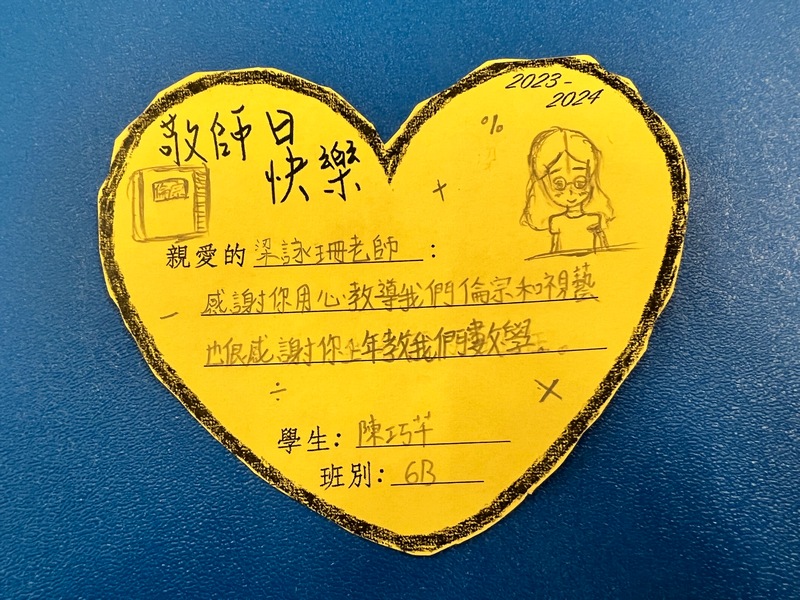 2023-
2024
敬師日
快樂
%
+
倫宗
親愛的 梁詠珊老師 :
感謝你用心教導我們倫宗和視藝
也很感謝你上年教我們數學。
-
÷
×
學生: 陳巧芊
班別: 6B